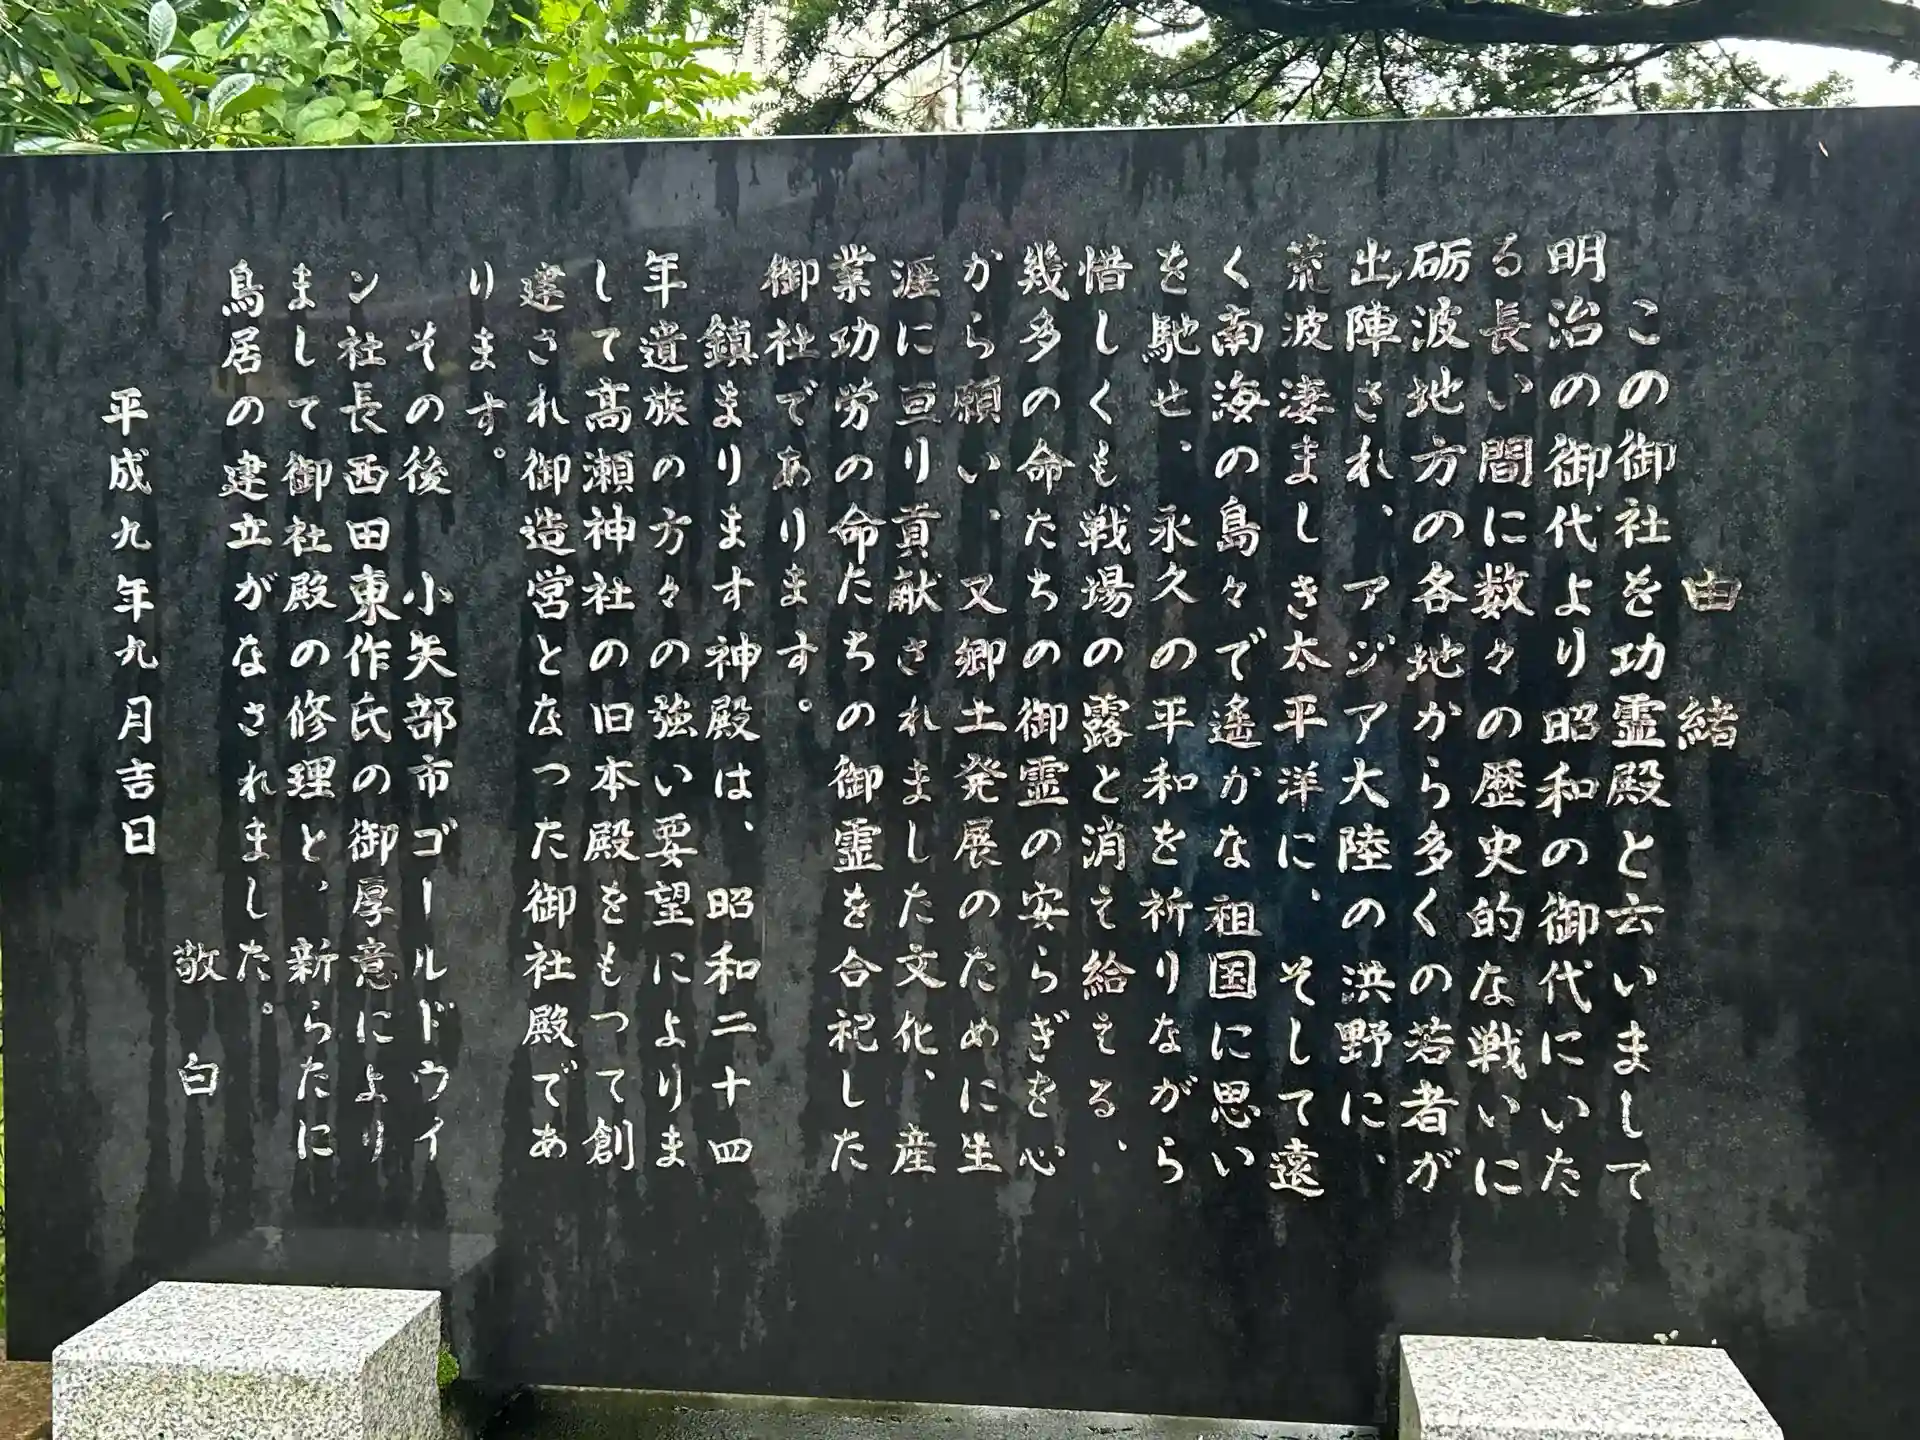 由緒
この御社を功霊殿と云いまして
明治の御代より昭和の御代にいた
る長い間に数々の歴史的な戦いに
砺波地方の各地から多くの若者が
出陣され、アジア大陸の洪野に、
荒波凄ましき太平洋に、そして遠
く南海の島々で遙かな祖国に思い
を馳せ、永久の平和を祈りながら
惜しくも戦場の露と消え給える、
幾多の命たちの御霊の安らぎを心
から願い、又郷土発展のために生
涯に亘り貢献されました文化、産
業功労の命たちの御霊を合祀した
御社であります。
鎮まります神殿は、昭和二十四
年遺族の方々の強い要望によりま
して高瀬神社の旧本殿をもつて創
建され御造営となつた御社殿であ
ります。
その後 小矢部市ゴールドウイ
ン社長西田東作氏の御厚意により
まして御社殿の修理と、新らたに
鳥居の建立がなされました。
敬白
平成九年九月吉日